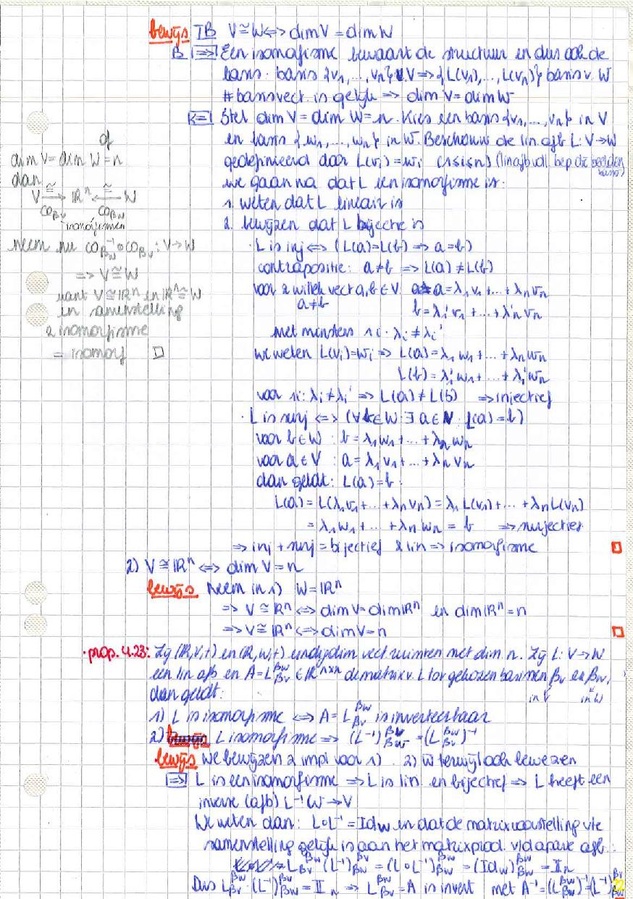 bewijs TB V≅W ⟺ dim V = dim W
B 1 ⟹ Een isomorfisme bewaart de structuur en dus ook de
basis: basis {v₁, ..., vₙ} v V ⟹ {L(v₁), ..., L(vₙ)} basis v. W
# basisvect. is gelijk ⟹ dim V = dim W
⟸ Stel dim V = dim W = n. Kies een basis {v₁, ..., vₙ} in V
en basis {w₁, ..., wₙ} in W. Beschouw de lin. afb L: V→W
gedefinieerd door L(vᵢ) = wᵢ (1≤i≤n) (lin afb vll bep dr beelden basis)
we gaan na dat L een isomorfisme is:
1. weten dat L lineair is
2. bewijzen dat L bijectie is
· L is inj ⟺ (L(a)=L(b) ⟹ a=b)
contrapositie: a≠b ⟹ L(a)≠L(b)
voor 2 willek vect a,b ∈ V a = λ₁v₁ + ... + λₙvₙ
a≠b b = λ₁'v₁ + ... + λₙ'vₙ
met minstens 1 i · λᵢ ≠ λᵢ'
We weten L(vᵢ)=wᵢ ⟹ L(a) = λ₁w₁ + ... + λₙwₙ
L(b) = λ₁'w₁ + ... + λₙ'wₙ
voor 1 i: λᵢ ≠ λᵢ' ⟹ L(a) ≠ L(b) ⟹ injectief
· L is surj ⟺ (∀b∈W: ∃ a∈V: L(a)=b)
voor b∈W: b = λ₁w₁ + ... + λₙwₙ
voor a∈V: a = λ₁v₁ + ... + λₙvₙ
dan geldt: L(a) = b:
L(a) = L(λ₁v₁ + ... + λₙvₙ) = λ₁L(v₁) + ... + λₙL(vₙ)
= λ₁w₁ + ... + λₙwₙ = b ⟹ surjectief
⟹ inj + surj = bijectief & lin ⟹ isomorfisme □
of
dim V = dim W = n
dan
V ≅→ ℝⁿ ←≅ W
co_βv co_βw
isomorfismen
Neem nu co_βw⁻¹ ∘ co_βv: V→W
⟹ V≅W
want V≅ℝⁿ en ℝⁿ≅W
en samenstelling
2 isomorfisme
= isomorf □
2) V≅ℝⁿ ⟺ dim V = n
bewijs Neem in 1) W=ℝⁿ
⟹ V≅ℝⁿ ⟺ dim V = dim ℝⁿ en dim ℝⁿ = n
⟹ V≅ℝⁿ ⟺ dim V = n □
· prop. 4.23: Zij (ℝ,V,+) en (ℝ,W,+) eindigdim vect ruimten met dim n. Zij L: V→W
een lin afb en A = L_βv^βw ∈ ℝⁿˣⁿ de matrix v. L tov gekozen basissen βv en βw,
in V in W
dan geldt:
1) L is isomorfisme ⟺ A = L_βv^βw is inverteerbaar
2) L isomorfisme ⟹ (L⁻¹)_βw^βv = (L_βv^βw)⁻¹
bewijs We bewijzen 2 impl voor 1) 2) w terwijl ook bewezen
⟹ L is een isomorfisme ⟹ L is lin en bijectief ⟹ L heeft een
inverse (afb) L⁻¹ W→V
We weten dan: L∘L⁻¹ = Id_W en dat de matrixvoorstelling vie
samenstelling gelijk is aan het matrixprod. vd aparte afb:
L_βv^βw (L⁻¹)_βw^βv = (L∘L⁻¹)_βw^βw = (Id_W)_βw^βw = 𝕀ₙ
Dus L_βv^βw · (L⁻¹)_βw^βv = 𝕀ₙ ⟹ L_βv^βw = A is invert met A⁻¹ = (L_βv^βw)⁻¹ = (L⁻¹)_βw^βv